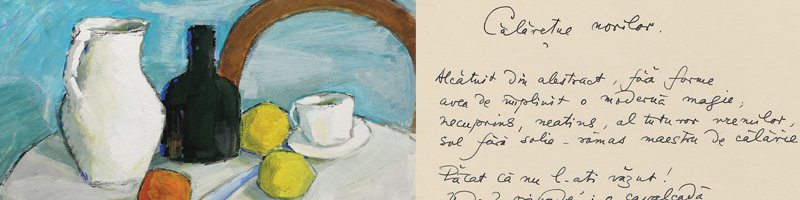 Călărețul norilor.
Alcătuit din abstract, fără forme
avea de împlinit o modernă magie;
necuprins, neatins, al tuturor vremilor,
sol fără solie - rămas maestru de călărie
Păcat că nu l-ați văzut!
cavalcadă